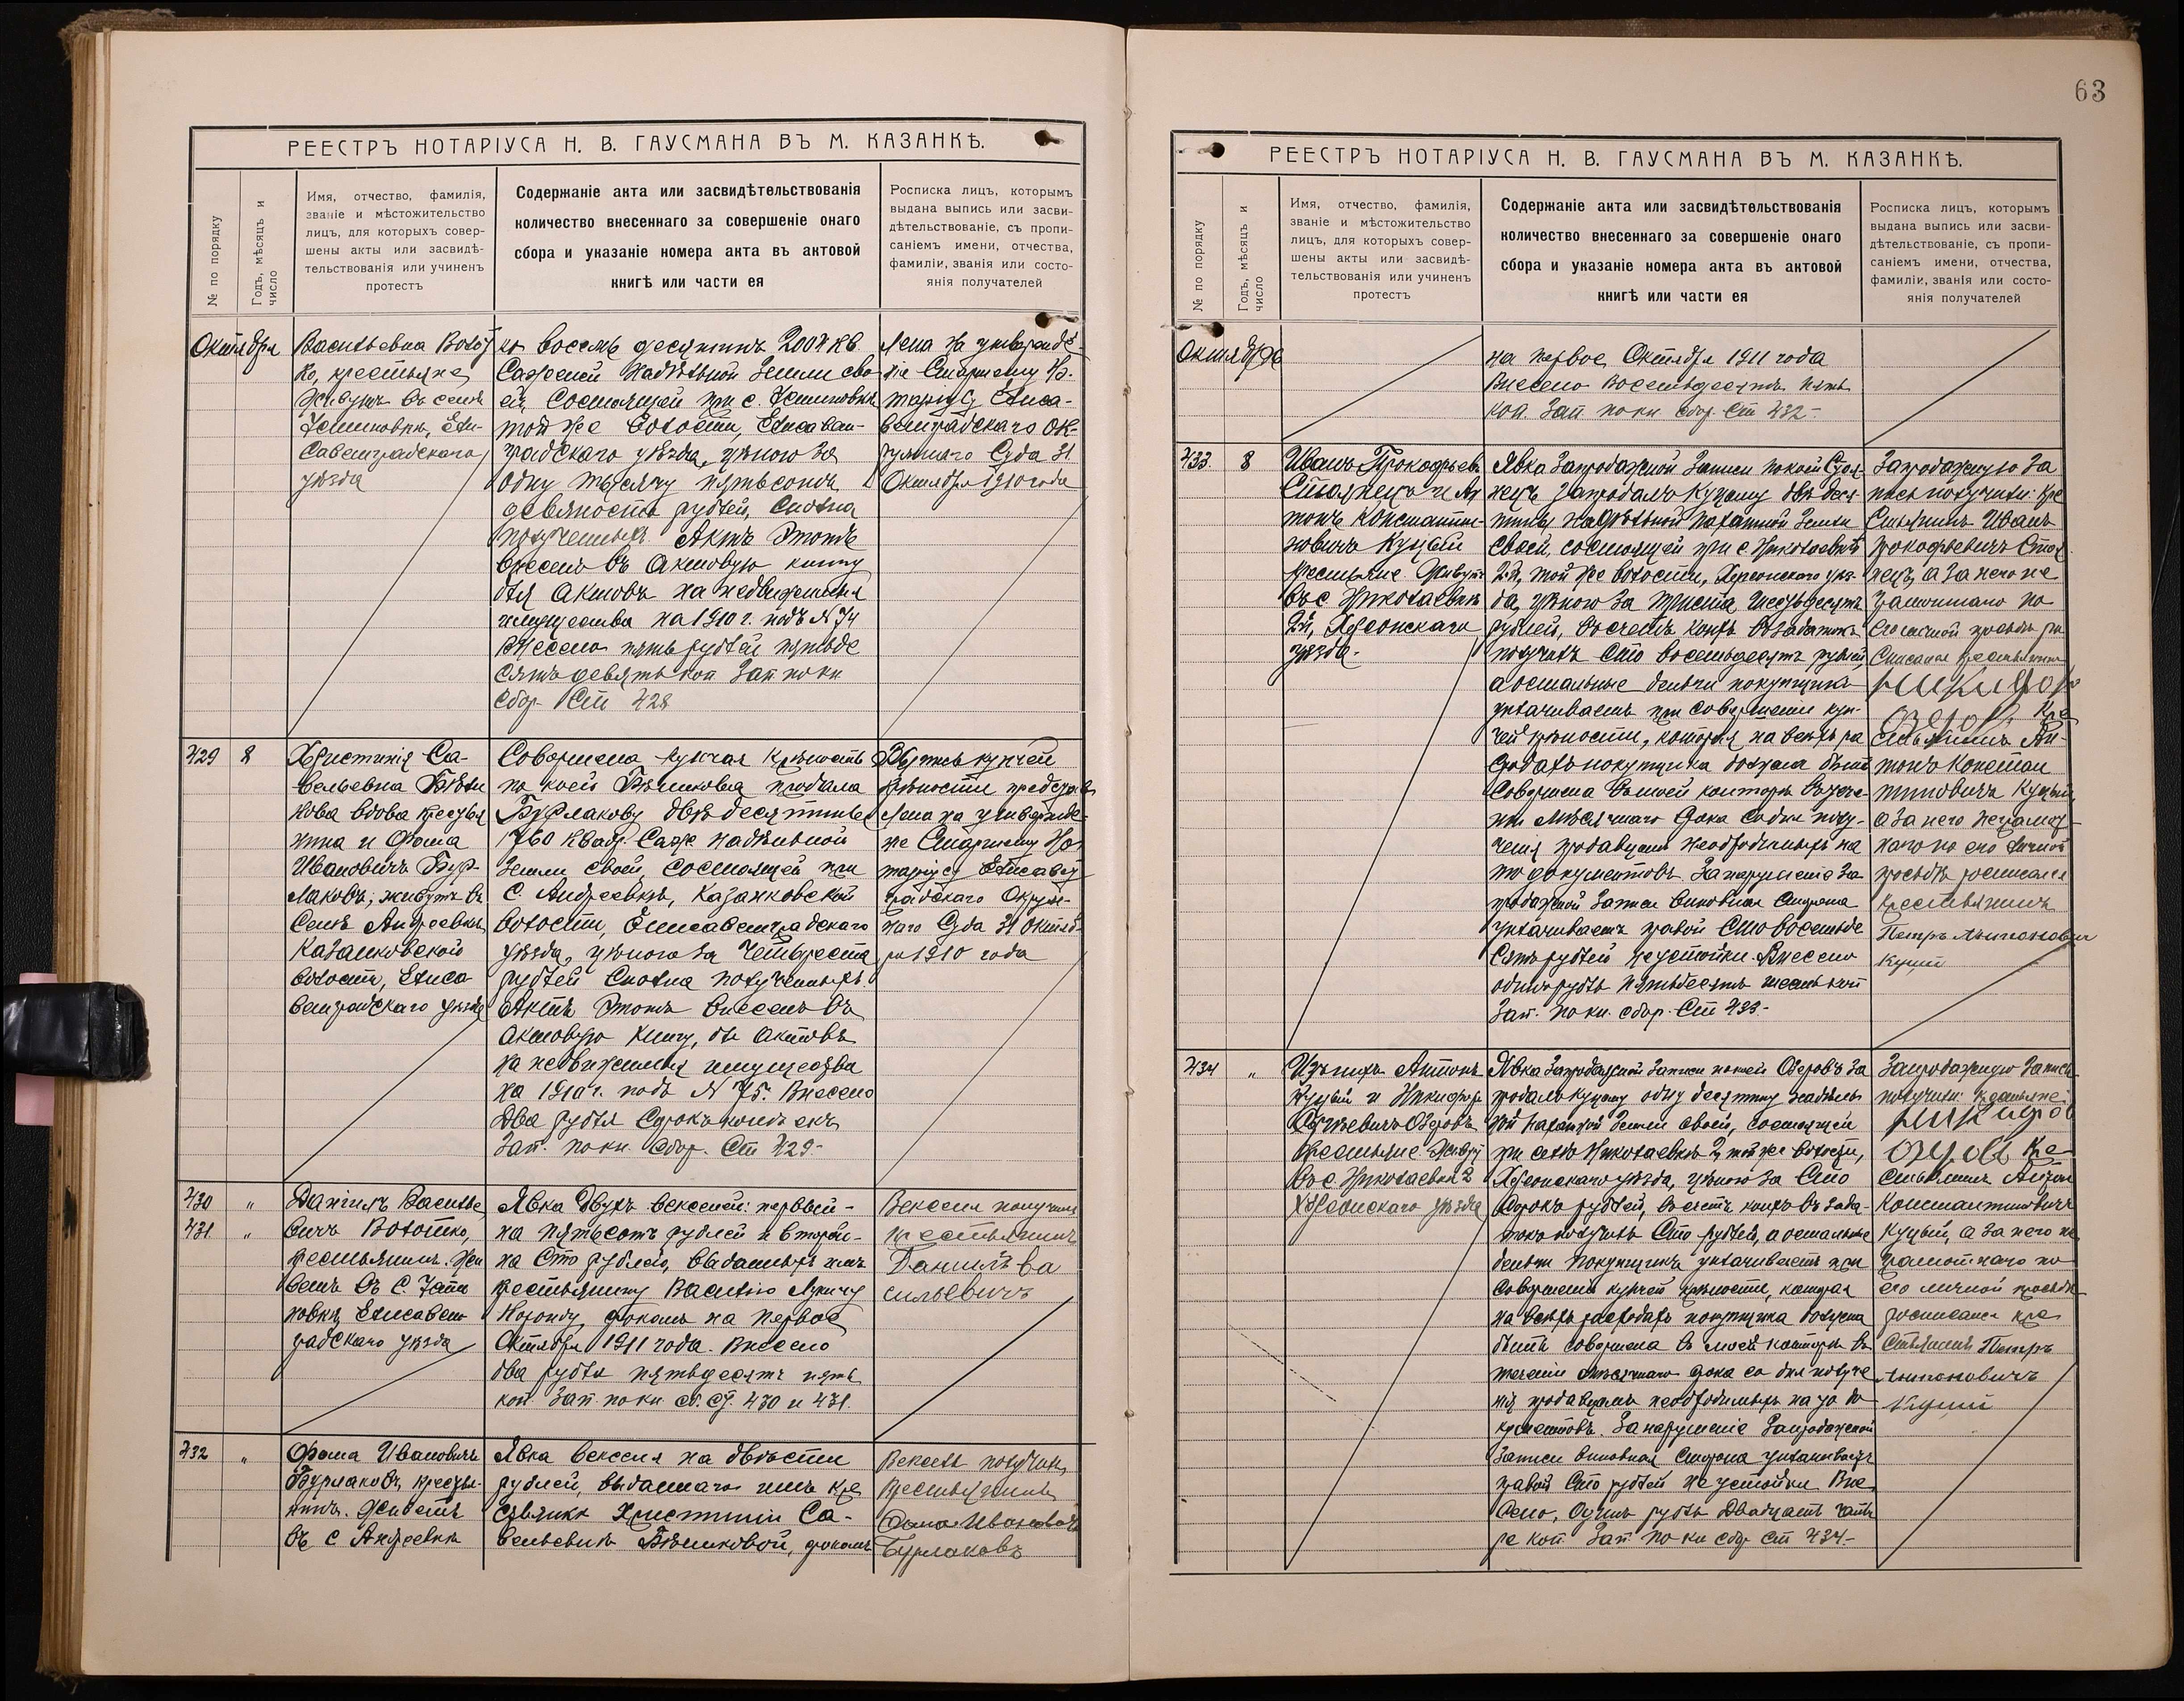 РЕЕСТРЪ НОТАРІУСА Н. В. ГАУСМАНА ВЪ М. КАЗАНКѢ.
№ по порядку
Годъ, мѣсяцъ и
число
Имя, отчество, фамилія,
званіе и мѣстожительство
лицъ, для которыхъ совер-
шены акты или засвидѣ-
тельствованія или учиненъ
протестъ
Содержаніе акта или засвидѣтельствованія
количество внесеннаго за совершеніе онаго
сбора и указаніе номера акта въ актовой
книгѣ или части ея
Росписка лицъ, которымъ
выдана выпись или засви-
дѣтельствованіе, съ пропи-
саніемъ имени, отчества,
фамиліи, званія или состо-
янія получателей
Октября
Васильевна
ко, крестьяне,
Живутъ въ селѣ
Ели-
саветградскаго
уѣзда
ко восемь десятинъ 2007 кв.
Саженей надѣльной земли сво
ей, состоящей при с.
той же волости, Елисавет-
градскаго уѣзда, цѣною за
одну тысячу пятьсотъ
девяносто рублей, сполна
полученныхъ. Актъ этотъ
внесенъ въ актовую книгу
для актовъ на недвижимыя
имущества на 1910 г. подъ № 74
Внесено пять рублей пятьде
сятъ девять коп. Зап. по кн
сбор. Ст 428
лена на утвержде-
ніе Старшему Но-
таріусу Елиса-
ветградскаго Ок-
ружнаго Суда 31
Октября 1910 года
429 8
Христинія Са-
вельевна Бѣли
кова вдова крестья
нина и Фома
Ивановичъ Бур-
лаковъ; живутъ въ
селѣ Андреевкѣ,
Казанковской
волости, Елиса-
ветградскаго уѣзда
Совершена купчая крѣпость
по коей продала
Бурлакову двѣ десятины
1760 квадр. Саж надѣльной
земли своей, состоящей при
с. Андреевкѣ, Казанковской
волости, Елисаветградскаго
уѣзда, цѣною за четыреста
рублей сполна полученныхъ.
Актъ этотъ внесенъ въ
актовую книгу, для актовъ
на недвижимыя имущества
на 1910 г. подъ № 75. Внесено
Два рубля сорокъ копѣекъ
Зап. по кн. сбор. Ст 429.-
Выпись купчей
крѣпости представ
лена на утвержде-
ніе Старшему Но-
таріусу Елисавет
градскаго Окруж-
наго Суда 31 Октяб-
ря 1910 года
430 "
431 "
Даніилъ Василье
вичъ
крестьянинъ. Жи
ветъ въ с.
новкѣ, Елисавет
градскаго уѣзда
Явка двухъ векселей: первый-
на пятьсотъ рублей и второй-
на сто рублей, выданныхъ имъ
крестьянину Василію Лукичу
срокомъ на первое
Октября 1911 года. Внесено
два рубля пятьдесятъ пять
коп. Зап. по кн. сб. ст. 430 и 431.
Векселя получилъ
крестьянинъ
Даніилъ Ва
сильевичъ
432 "
Фома Ивановичъ
Бурлаковъ, крестья-
нинъ. Живетъ
въ с Андреевкѣ
Явка векселя на двѣсти
рублей, выданнаго имъ кре
стьянкѣ Христиніи Са-
вельевнѣ срокомъ
Вексель получилъ
крестьянинъ
Фома Ивановичъ
Бурлаковъ
63
РЕЕСТРЪ НОТАРІУСА Н. В. ГАУСМАНА ВЪ М. КАЗАНКѢ.
№ по порядку
Годъ, мѣсяцъ и
число
Имя, отчество, фамилія,
званіе и мѣстожительство
лицъ, для которыхъ совер-
шены акты или засвидѣ-
тельствованія или учиненъ
протестъ
Содержаніе акта или засвидѣтельствованія
количество внесеннаго за совершеніе онаго
сбора и указаніе номера акта въ актовой
книгѣ или части ея
Росписка лицъ, которымъ
выдана выпись или засви-
дѣтельствованіе, съ пропи-
саніемъ имени, отчества,
фамиліи, званія или состо-
янія получателей
Октября
на первое Октября 1911 года
Внесено восемьдесятъ пять
коп. Зап. по кн. сбор. Ст 432-
433. 8
Иванъ Прокофьевъ
Стоянецъ и Ан
тонъ Константи-
новичъ Куцый
крестьяне. Живутъ
въ с Николаевкѣ
2й, Херсонскаго
уѣзда.-
Явка запродажной записи по коей Стоя-
нецъ запродалъ Куцому двѣ деся-
тины надѣльной пахатной земли
своей, состоящей при с. Николаевкѣ
2-й, той же волости, Херсонскаго уѣз-
да, цѣною за триста шестьдесятъ
рублей, въ счетъ коихъ въ задатокъ
получилъ сто восемьдесятъ рублей
а остальные деньги покупщикъ
уплачиваетъ при совершеніи куп-
чей крѣпости, которая на весь ра
сходахъ покупщика должна быть
совершена въ моей конторѣ въ тече-
ніи мѣсячнаго срока со дня полу-
ченія продавцомъ необходимыхъ на
то документовъ. За нарушеніе за-
продажной записи виновная сторона
уплачиваетъ правой сто восемьде
сятъ рублей неустойки. Внесено
одинъ рубль пятьдесятъ шесть коп
Зап. по кн. сбор. Ст 433.-
Запродажную за
пись получили: кре
стьянинъ Иванъ
Прокофьевичъ Стоя
нецъ, а за него не
грамотнаго по
его личной просьбѣ ра
списался крестьянинъ
никифор
озеровъ Кре
стьянинъ Ан-
тонъ Констан
тиновичъ Куцый,
а за него неграмот
наго по его личной
просьбѣ росписался
крестьянинъ
Петръ Антонович
Куций
434 "
Антонъ
Куцый и Никифоръ
Озеровъ
крестьяне. Живут
въ с. Николаевкѣ 2
Херсонскаго уѣзда
Явка запродажной записи по коей Озеровъ за
продалъ Куцому одну десятину надѣль
ной пахатной земли своей, состоящей
при селѣ Николаевкѣ 2, той же волости,
Херсонскаго уѣзда, цѣною за сто
сорокъ рублей, въ счетъ коихъ въ зада-
токъ получилъ сто рублей, а остальные
деньги покупщикъ уплачиваетъ при
совершеніи купчей крѣпости, которая
на весь расходахъ покупщика должна
быть совершена въ моей конторѣ въ
теченіи мѣсячнаго срока со дня получе
нія продавцомъ необходимыхъ на то до
кументовъ. За нарушеніе запродажной
записи виновная сторона уплачиваетъ
правой сто рублей неустойки. Вне
сено, одинъ рубль двадцать четы
ре коп. Зап. по кн сбор Ст 434.-
Запродажную запись
получили: крестьяне:
никифоръ
озеров Кре
стьянинъ Антон
Константиновичъ
Куцый, а за него не
грамотнаго по
его личной просьбѣ
росписался кре
стьянинъ Петръ
Антоновичъ
Куций